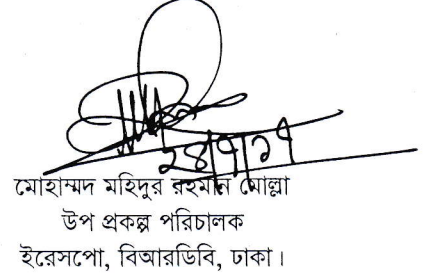 ২৪/৭/১৭
মোহাম্মদ মহিদুর রহমান মোল্লা
উপ প্রকল্প পরিচালক
ইরেসপো, বিআরডিবি, ঢাকা।